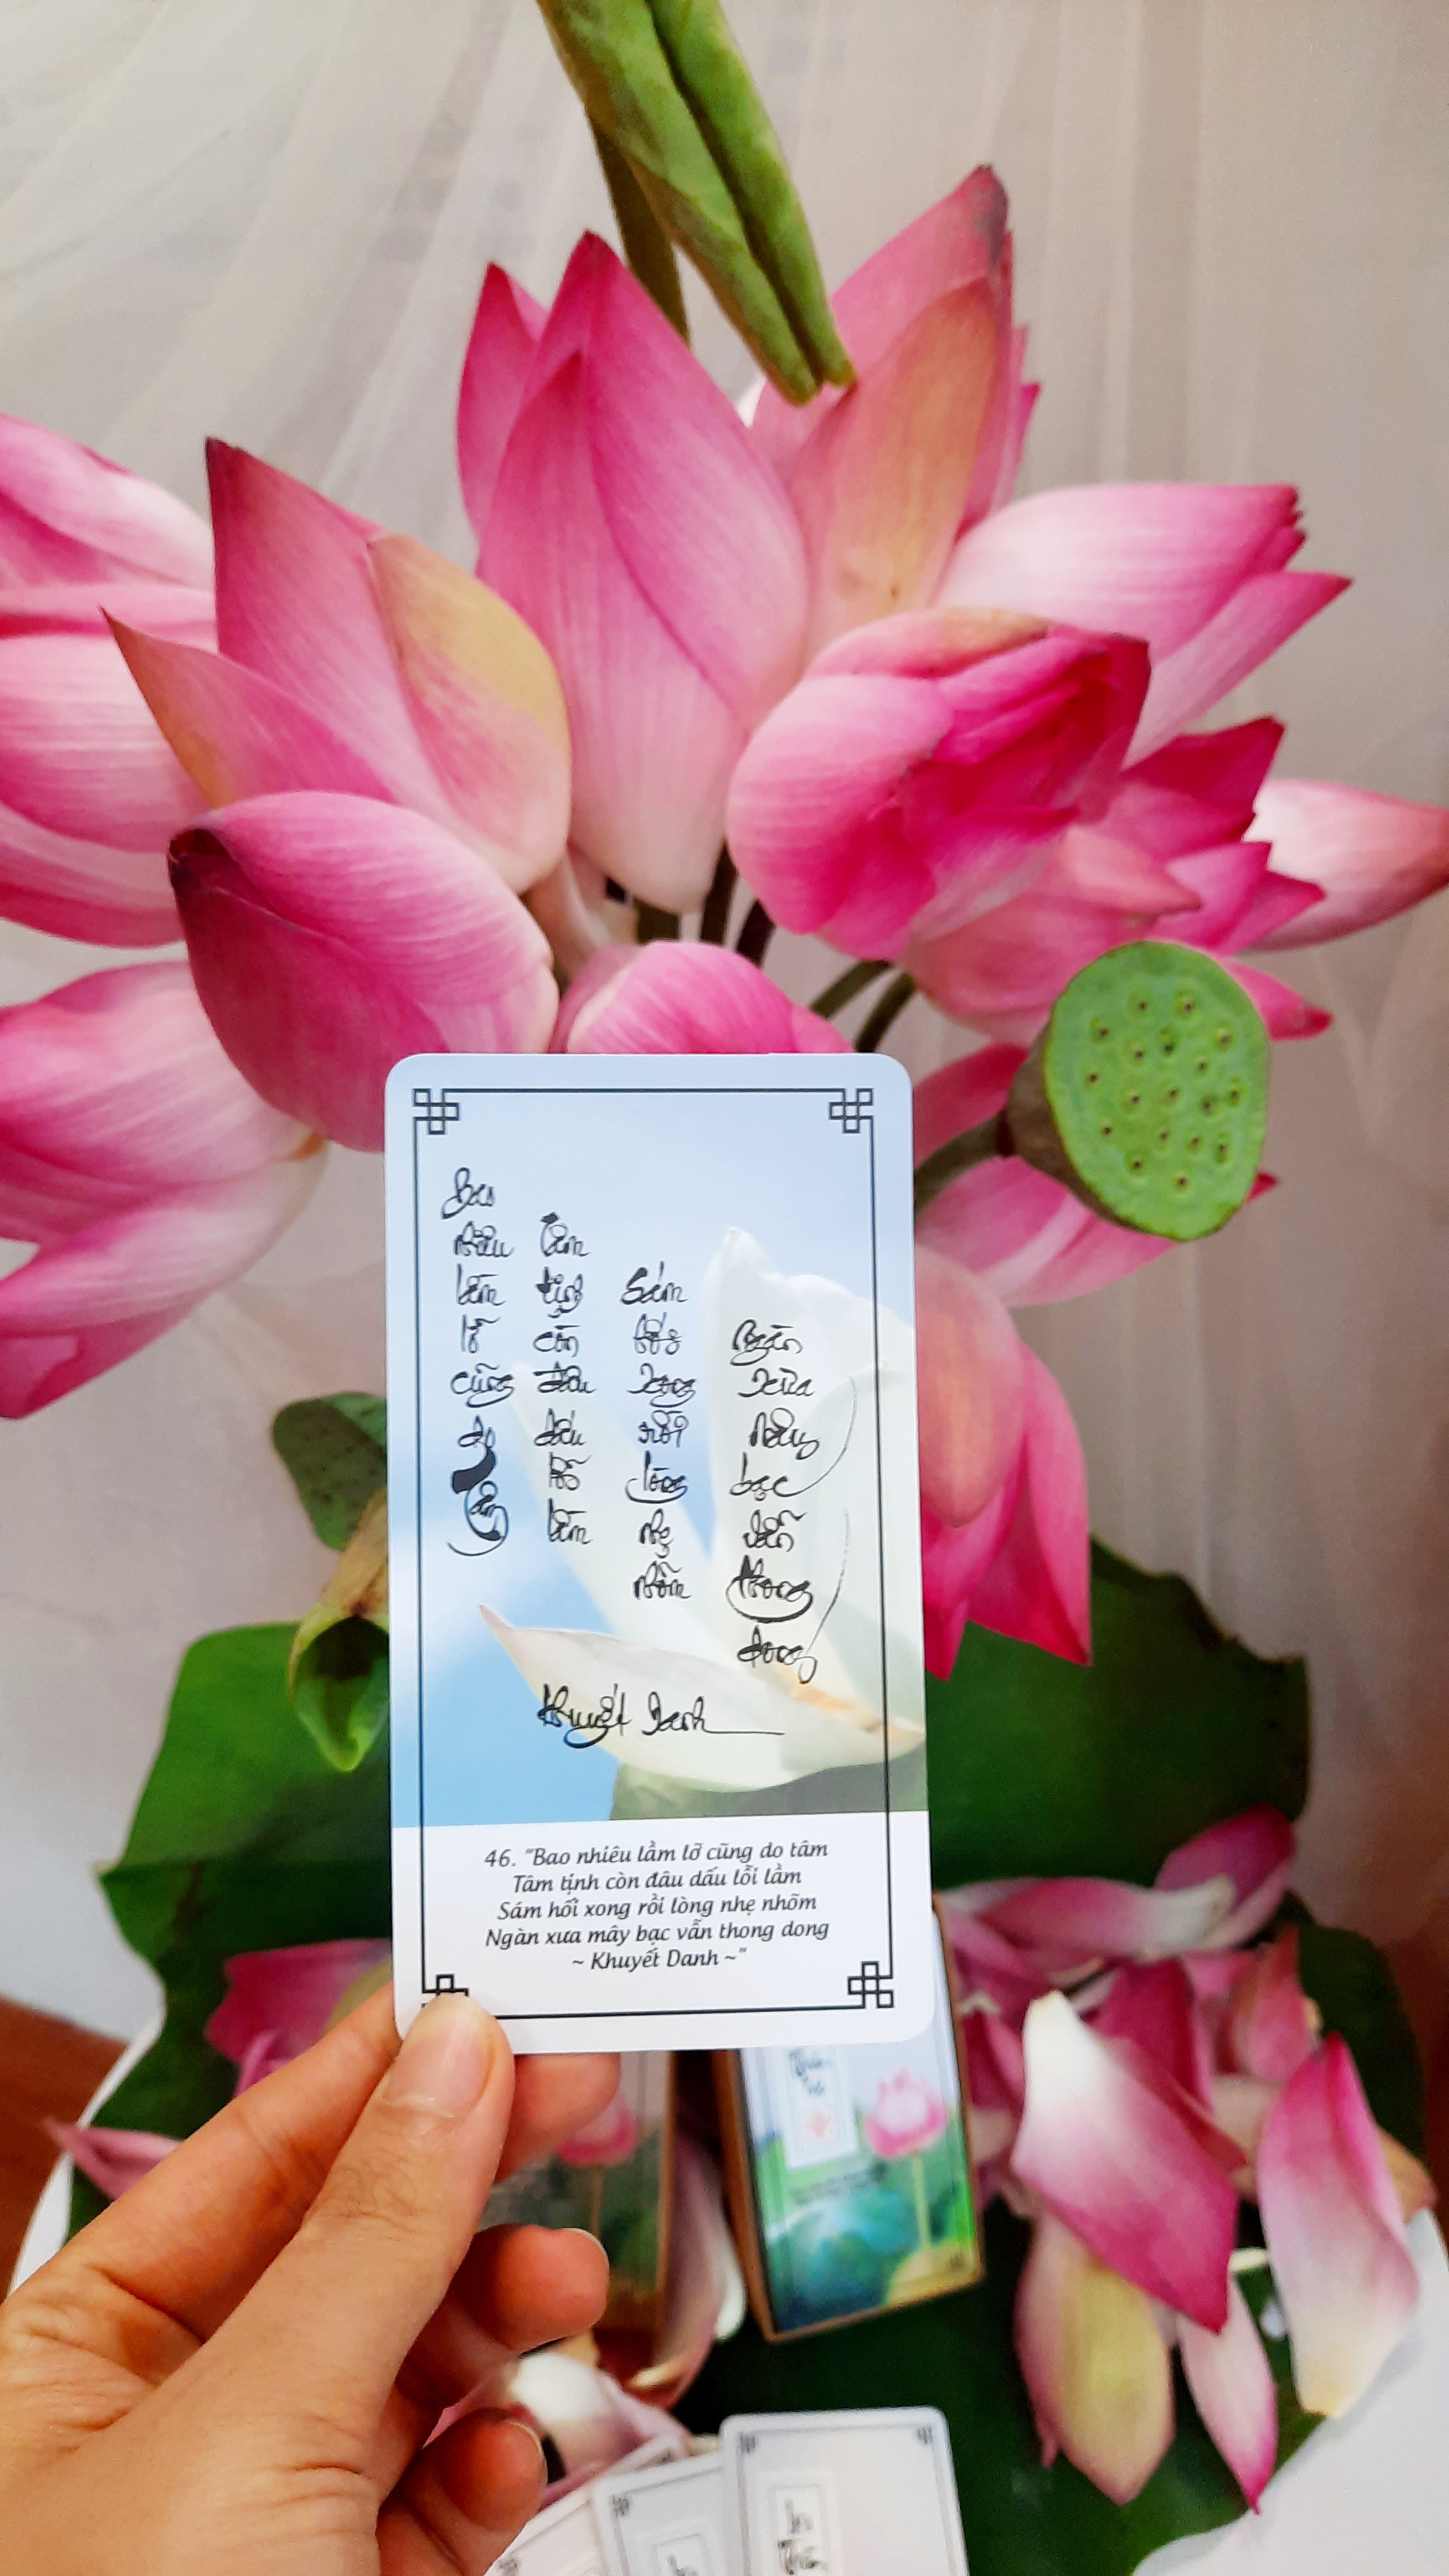 Bao
nhiêu
lầm
lỡ
cũng
do
tâm
Tâm
tịnh
còn
đâu
dấu
lỗi
lầm
Sám
hối
xong
rồi
lòng
nhẹ
nhõm
Ngàn
xưa
mây
bạc
vẫn
thong
dong
Khuyết Danh
46. "Bao nhiêu lầm lỡ cũng do tâm
Tâm tịnh còn đâu dấu lỗi lầm
Sám hối xong rồi lòng nhẹ nhõm
Ngàn xưa mây bạc vẫn thong dong
~ Khuyết Danh ~"